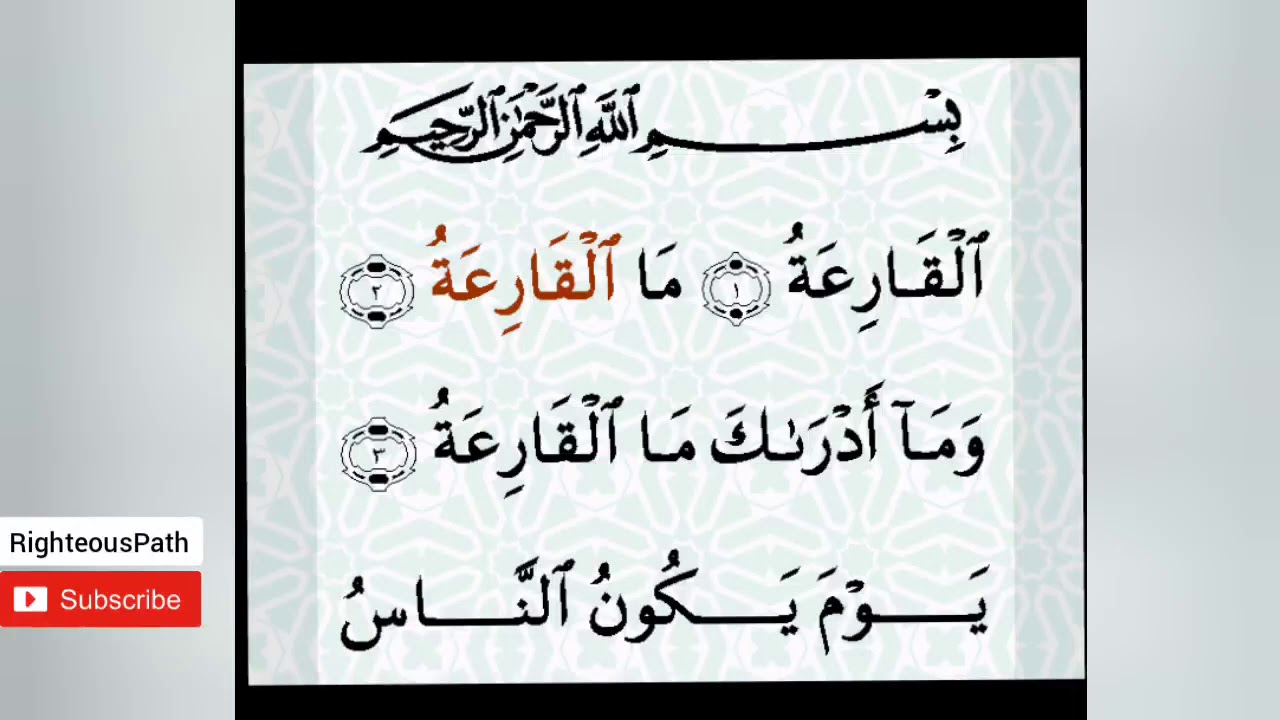 بِسْمِ ٱللَّهِ ٱلرَّحْمَٰنِ ٱلرَّحِيمِ
ٱلْقَارِعَةُ ١ مَا ٱلْقَارِعَةُ ٢
وَمَآ أَدْرَىٰكَ مَا ٱلْقَارِعَةُ ٣
يَوْمَ يَكُونُ ٱلنَّاسُ
RighteousPath
Subscribe